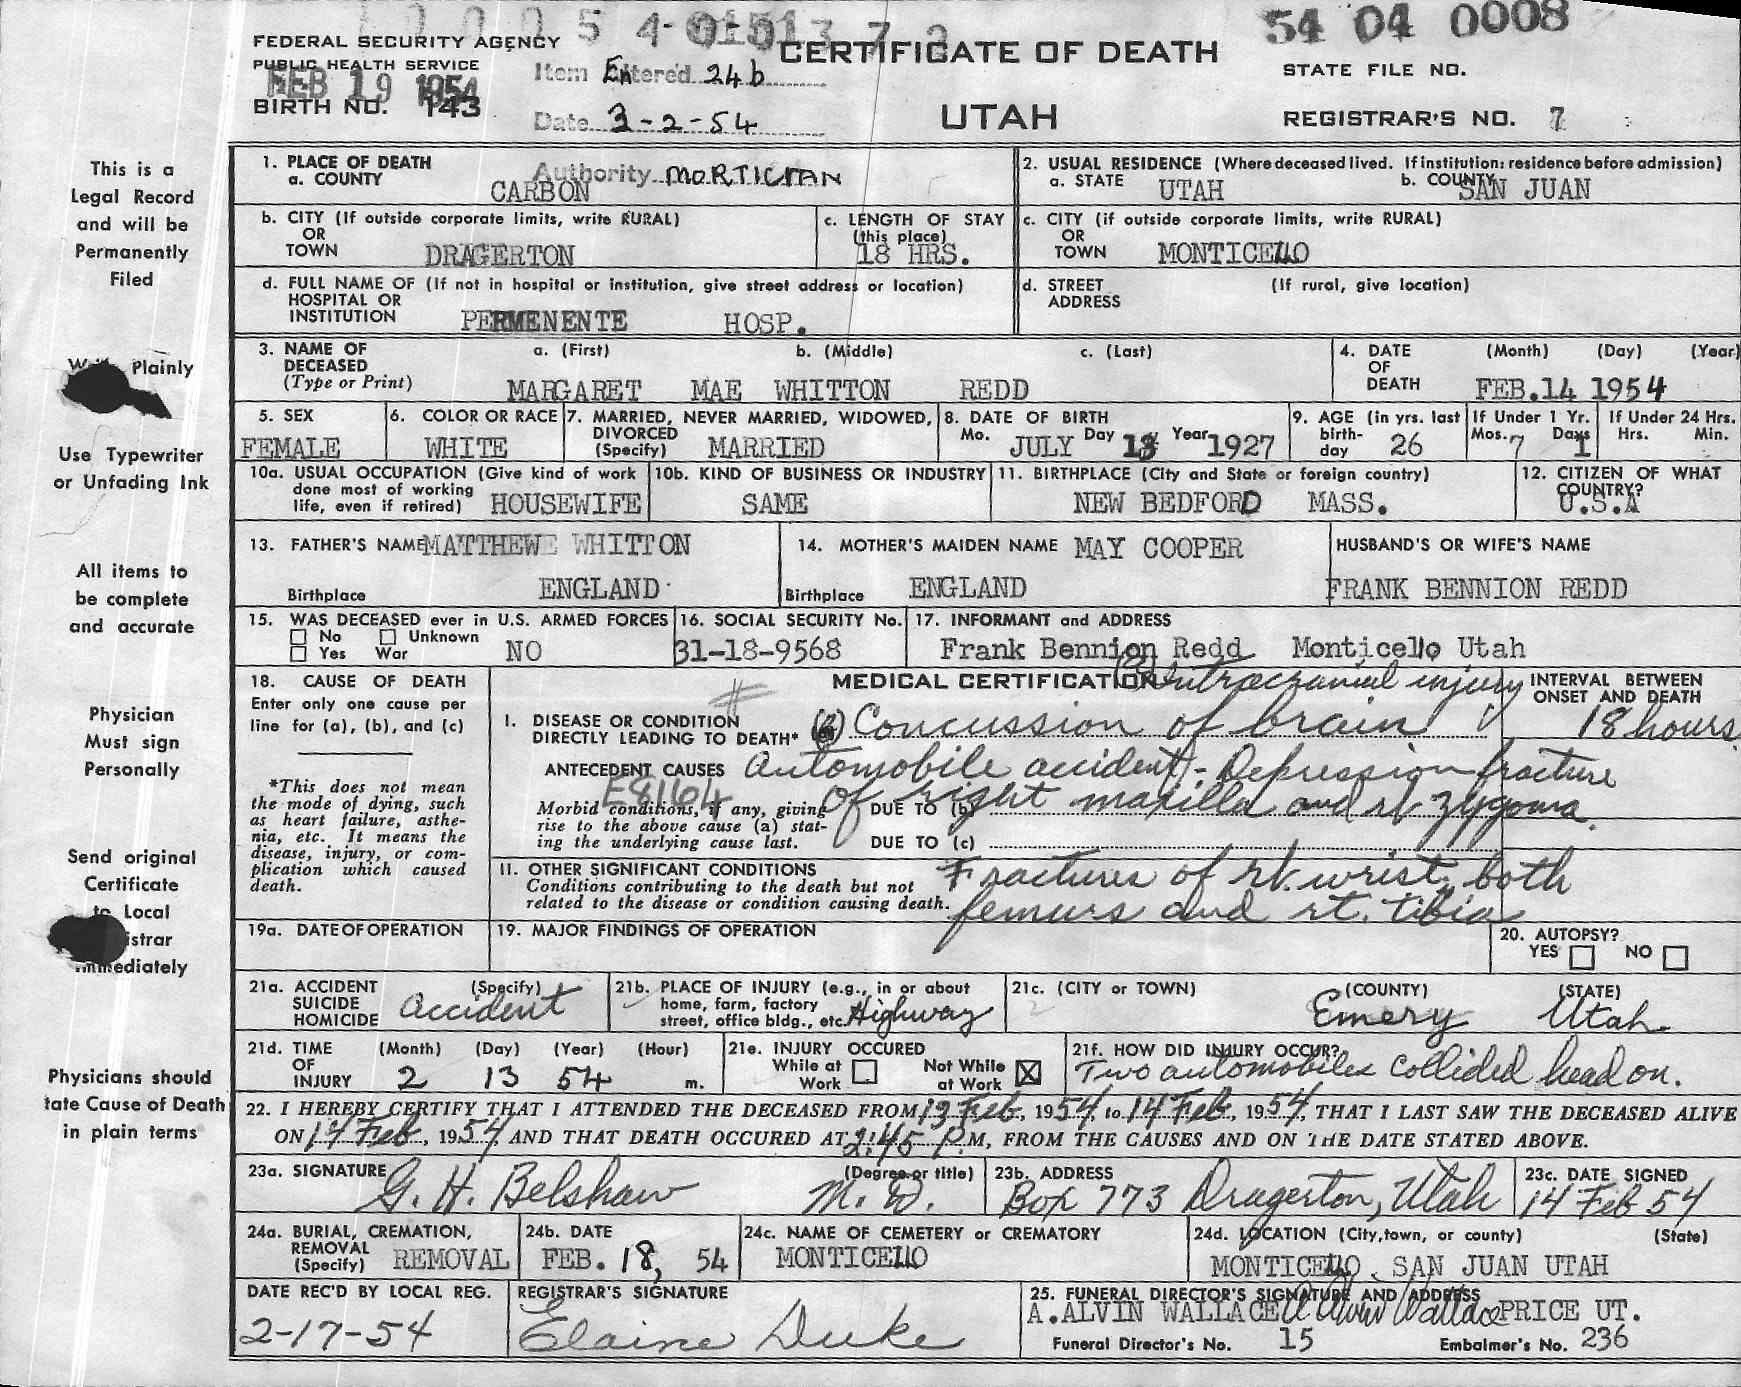 54 04 0008
FEDERAL SECURITY AGENCY
PUBLIC HEALTH SERVICE
FEB 19 1954
BIRTH NO. 143
Item Entered 24b
Date 3-2-54
Authority MORTICIAN
CERTIFICATE OF DEATH
UTAH
STATE FILE NO.
REGISTRAR'S NO. 7
This is a
Legal Record
and will be
Permanently
Filed
Plainly
Use Typewriter
or Unfading Ink
All items to
be complete
and accurate
Physician
Must sign
Personally
Send original
Certificate
to Local
istrar
mediately
Physicians should
tate Cause of Death
in plain terms
1. PLACE OF DEATH
a. COUNTY CARBON
2. USUAL RESIDENCE (Where deceased lived. If institution: residence before admission)
a. STATE UTAH b. COUNTY SAN JUAN
b. CITY (If outside corporate limits, write RURAL)
OR
TOWN DRAGERTON
c. LENGTH OF STAY
(this place)
18 HRS.
c. CITY (if outside corporate limits, write RURAL)
OR
TOWN MONTICELLO
d. FULL NAME OF (If not in hospital or institution, give street address or location)
HOSPITAL OR
INSTITUTION PERMENENTE HOSP.
d. STREET (If rural, give location)
ADDRESS
3. NAME OF DECEASED (Type or Print)
a. (First) b. (Middle) c. (Last)
MARGARET MAE WHITTON REDD
4. DATE OF DEATH (Month) (Day) (Year)
FEB.14 1954
5. SEX
FEMALE
6. COLOR OR RACE
WHITE
7. MARRIED, NEVER MARRIED, WIDOWED,
DIVORCED
(Specify) MARRIED
8. DATE OF BIRTH
Mo. JULY Day 13 Year 1927
9. AGE (in yrs. last
birth-
day 26
If Under 1 Yr.
Mos. 7 Days 1
If Under 24 Hrs.
Hrs. Min.
10a. USUAL OCCUPATION (Give kind of work
done most of working
life, even if retired) HOUSEWIFE
10b. KIND OF BUSINESS OR INDUSTRY
SAME
11. BIRTHPLACE (City and State or foreign country)
NEW BEDFORD MASS.
12. CITIZEN OF WHAT
COUNTRY?
U.S.A
13. FATHER'S NAME MATTHEWE WHITTON
Birthplace ENGLAND
14. MOTHER'S MAIDEN NAME MAY COOPER
Birthplace ENGLAND
HUSBAND'S OR WIFE'S NAME
FRANK BENNION REDD
15. WAS DECEASED ever in U.S. ARMED FORCES
No Unknown
Yes War NO
16. SOCIAL SECURITY No.
31-18-9568
17. INFORMANT and ADDRESS
Frank Bennion Redd Monticello Utah
18. CAUSE OF DEATH
Enter only one cause per
line for (a), (b), and (c)
*This does not mean
the mode of dying, such
as heart failure, asthe-
nia, etc. It means the
disease, injury, or com-
plication which caused
death.
MEDICAL CERTIFICATION
Intracranial injury
INTERVAL BETWEEN
ONSET AND DEATH
I. DISEASE OR CONDITION
DIRECTLY LEADING TO DEATH* (a) Concussion of brain 18 hours
ANTECEDENT CAUSES Automobile accident - Depression fracture
E8164
Morbid conditions, if any, giving DUE TO (b) of right maxilla and rt zygoma.
rise to the above cause (a) stat-
ing the underlying cause last. DUE TO (c)
II. OTHER SIGNIFICANT CONDITIONS
Conditions contributing to the death but not
related to the disease or condition causing death.
Fractures of rt. wrist, both
femurs and rt. tibia
19a. DATE OF OPERATION
19. MAJOR FINDINGS OF OPERATION
20. AUTOPSY?
YES NO
21a. ACCIDENT (Specify)
SUICIDE
HOMICIDE Accident
21b. PLACE OF INJURY (e.g., in or about
home, farm, factory
street, office bldg., etc. Highway
21c. (CITY or TOWN) (COUNTY) (STATE)
Emery Utah
21d. TIME OF INJURY (Month) (Day) (Year) (Hour)
2 13 54 m.
21e. INJURY OCCURED
While at Work
Not While at Work X
21f. HOW DID INJURY OCCUR?
Two automobiles collided head on.
22. I HEREBY CERTIFY THAT I ATTENDED THE DECEASED FROM 13 Feb, 1954, to 14 Feb, 1954, THAT I LAST SAW THE DECEASED ALIVE
ON 14 Feb, 1954, AND THAT DEATH OCCURED AT 2:45 P.M, FROM THE CAUSES AND ON THE DATE STATED ABOVE.
23a. SIGNATURE (Degree or title)
G. H. Belshaw M. D.
23b. ADDRESS
Box 773 Dragerton, Utah
23c. DATE SIGNED
14 Feb 54
24a. BURIAL, CREMATION,
REMOVAL
(Specify) REMOVAL
24b. DATE
FEB. 18, 54
24c. NAME OF CEMETERY or CREMATORY
MONTICELLO
24d. LOCATION (City, town, or county) (State)
MONTICELLO, SAN JUAN UTAH
DATE REC'D BY LOCAL REG.
2-17-54
REGISTRAR'S SIGNATURE
Elaine Duke
25. FUNERAL DIRECTOR'S SIGNATURE AND ADDRESS
A. ALVIN WALLACE A Alvin Wallace PRICE UT.
Funeral Director's No. 15 Embalmer's No. 236